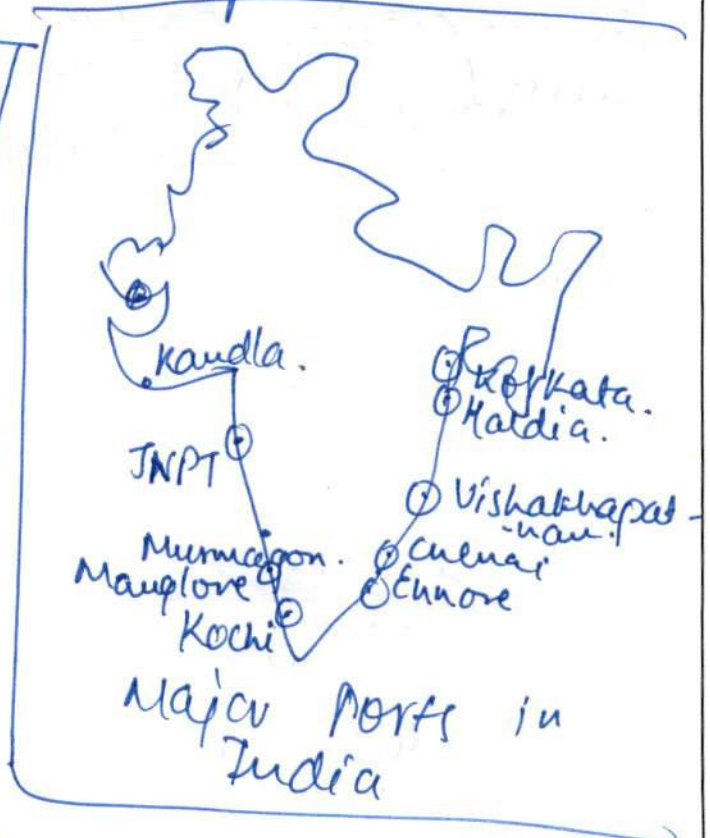 Kandla.
Kolkata.
Haldia.
JNPT
Vishakhapat-
-nam.
Murmagon.
Chennai
Manglore
Ennore
Kochi
Major Ports in
India